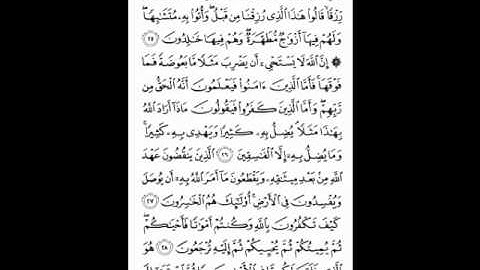 رِّزْقًا قَالُوا۟ هَٰذَا ٱلَّذِى رُزِقْنَا مِن قَبْلُ وَأُتُوا۟ بِهِۦ مُتَشَٰبِهًا
وَلَهُمْ فِيهَآ أَزْوَٰجٌ مُّطَهَّرَةٌ وَهُمْ فِيهَا خَٰلِدُونَ ٢٥
۞ إِنَّ ٱللَّهَ لَا يَسْتَحْىِۦٓ أَن يَضْرِبَ مَثَلًا مَّا بَعُوضَةً فَمَا
فَوْقَهَا فَأَمَّا ٱلَّذِينَ ءَامَنُوا۟ فَيَعْلَمُونَ أَنَّهُ ٱلْحَقُّ مِن
رَّبِّهِمْ وَأَمَّا ٱلَّذِينَ كَفَرُوا۟ فَيَقُولُونَ مَاذَآ أَرَادَ ٱللَّهُ
بِهَٰذَا مَثَلًا يُضِلُّ بِهِۦ كَثِيرًا وَيَهْدِى بِهِۦ كَثِيرًا
وَمَا يُضِلُّ بِهِۦٓ إِلَّا ٱلْفَٰسِقِينَ ٢٦ ٱلَّذِينَ يَنقُضُونَ عَهْدَ
ٱللَّهِ مِنۢ بَعْدِ مِيثَٰقِهِۦ وَيَقْطَعُونَ مَآ أَمَرَ ٱللَّهُ بِهِۦٓ أَن يُوصَلَ
وَيُفْسِدُونَ فِى ٱلْأَرْضِ أُو۟لَٰٓئِكَ هُمُ ٱلْخَٰسِرُونَ ٢٧
كَيْفَ تَكْفُرُونَ بِٱللَّهِ وَكُنتُمْ أَمْوَٰتًا فَأَحْيَٰكُمْ
ثُمَّ يُمِيتُكُمْ ثُمَّ يُحْيِيكُمْ ثُمَّ إِلَيْهِ تُرْجَعُونَ ٢٨ هُوَ